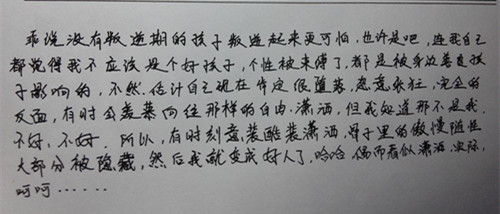 乖说没有叛逆期的孩子叛逆起来更可怕,也许是吧,连我自己
都觉得我不应该是个好孩子,个性被束缚了,都是被身边善良孩
子影响的,不然,估计自己现在肯定很堕落,恣意疯狂,完全的
反面,有时会羡慕向往那样的自由、潇洒,但我知道那不是我,
不好,不好.所以,有时刻意装酷装潇洒,骨子里的傲慢随性
大部分被隐藏,然后我就变成好人了,哈哈 偶而看似潇洒.实际,
呵呵……